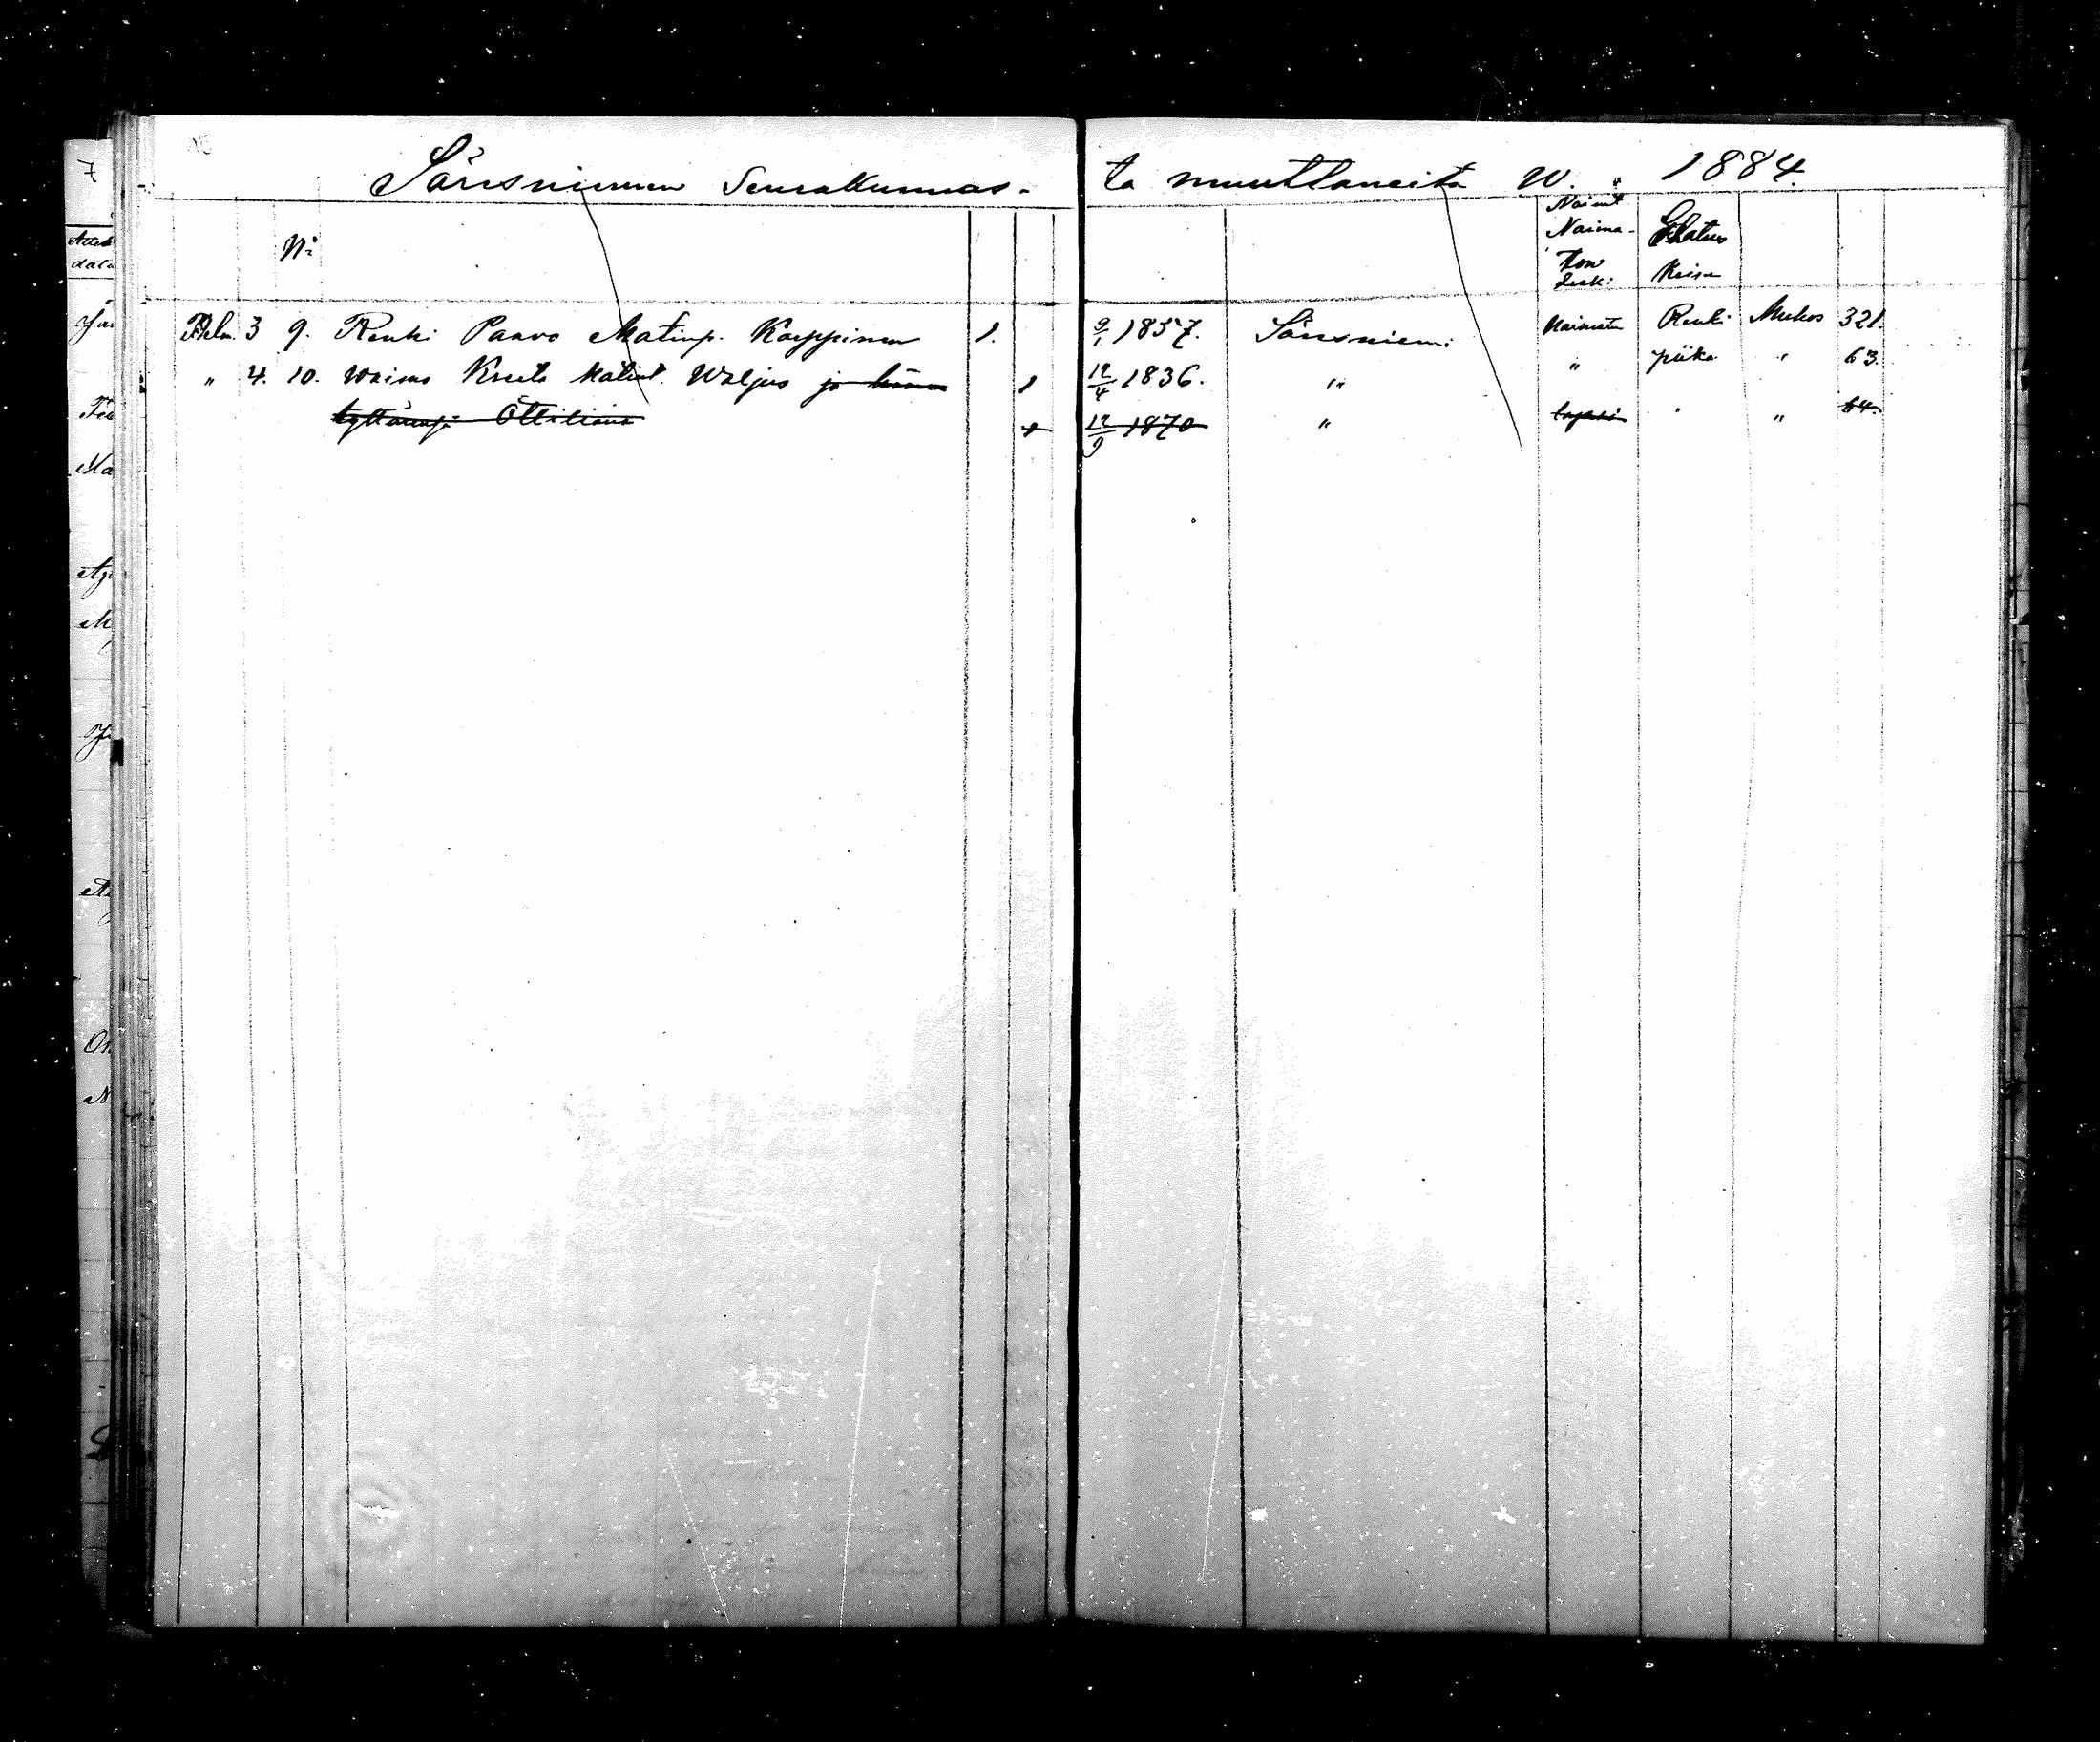 Säräisniemen Seurakunnas- ta muuttaneita W. " 1884.
No
Naint
Naima-
ton
Leski
Elatus
Keino
Helm. 3 9. Renki Paavo Matinp. Karppinen 1. 9/1 1857. Säräisniemi Naimaton Renki Muhos 321.
" 4. 10. Waimo Kreeta Matint. Waljus ja hänen 1 12/4 1836. " " piika " 63.
tyttärensä Ottiliana 1 12/9 1870 " lapsi " " 64.
7